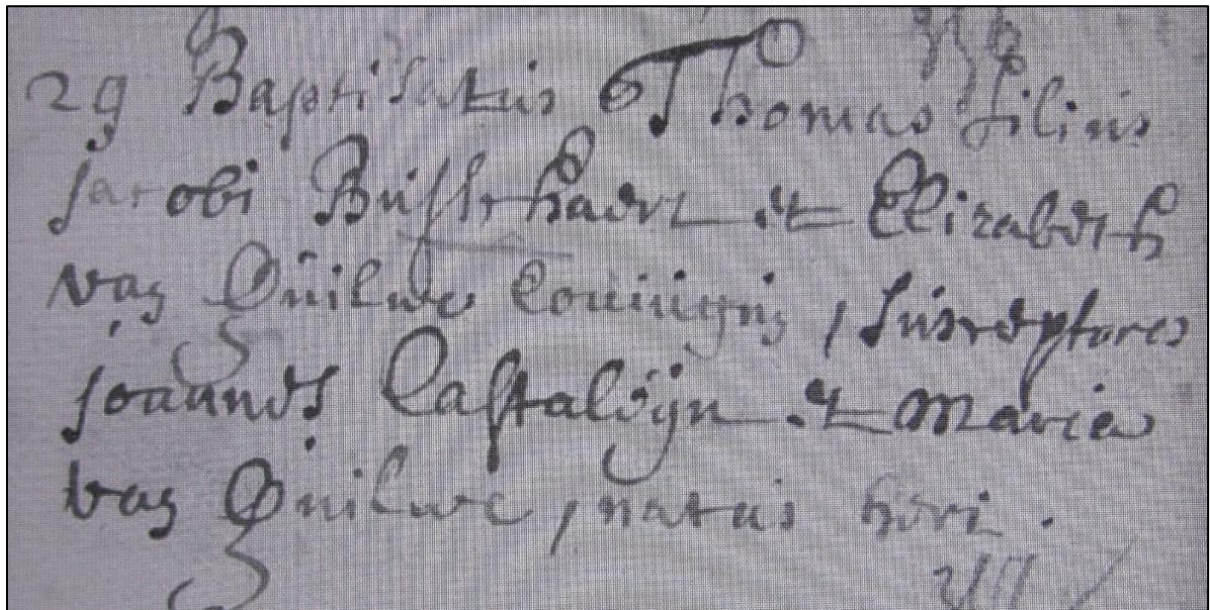 29 Baptisatus Thomas filius
Jacobi Busschaert et Elizabeth
van Quilwe Coniugis, Susceptores
Joannes Castaleijn et Maria
van Quilwe, natus heri.